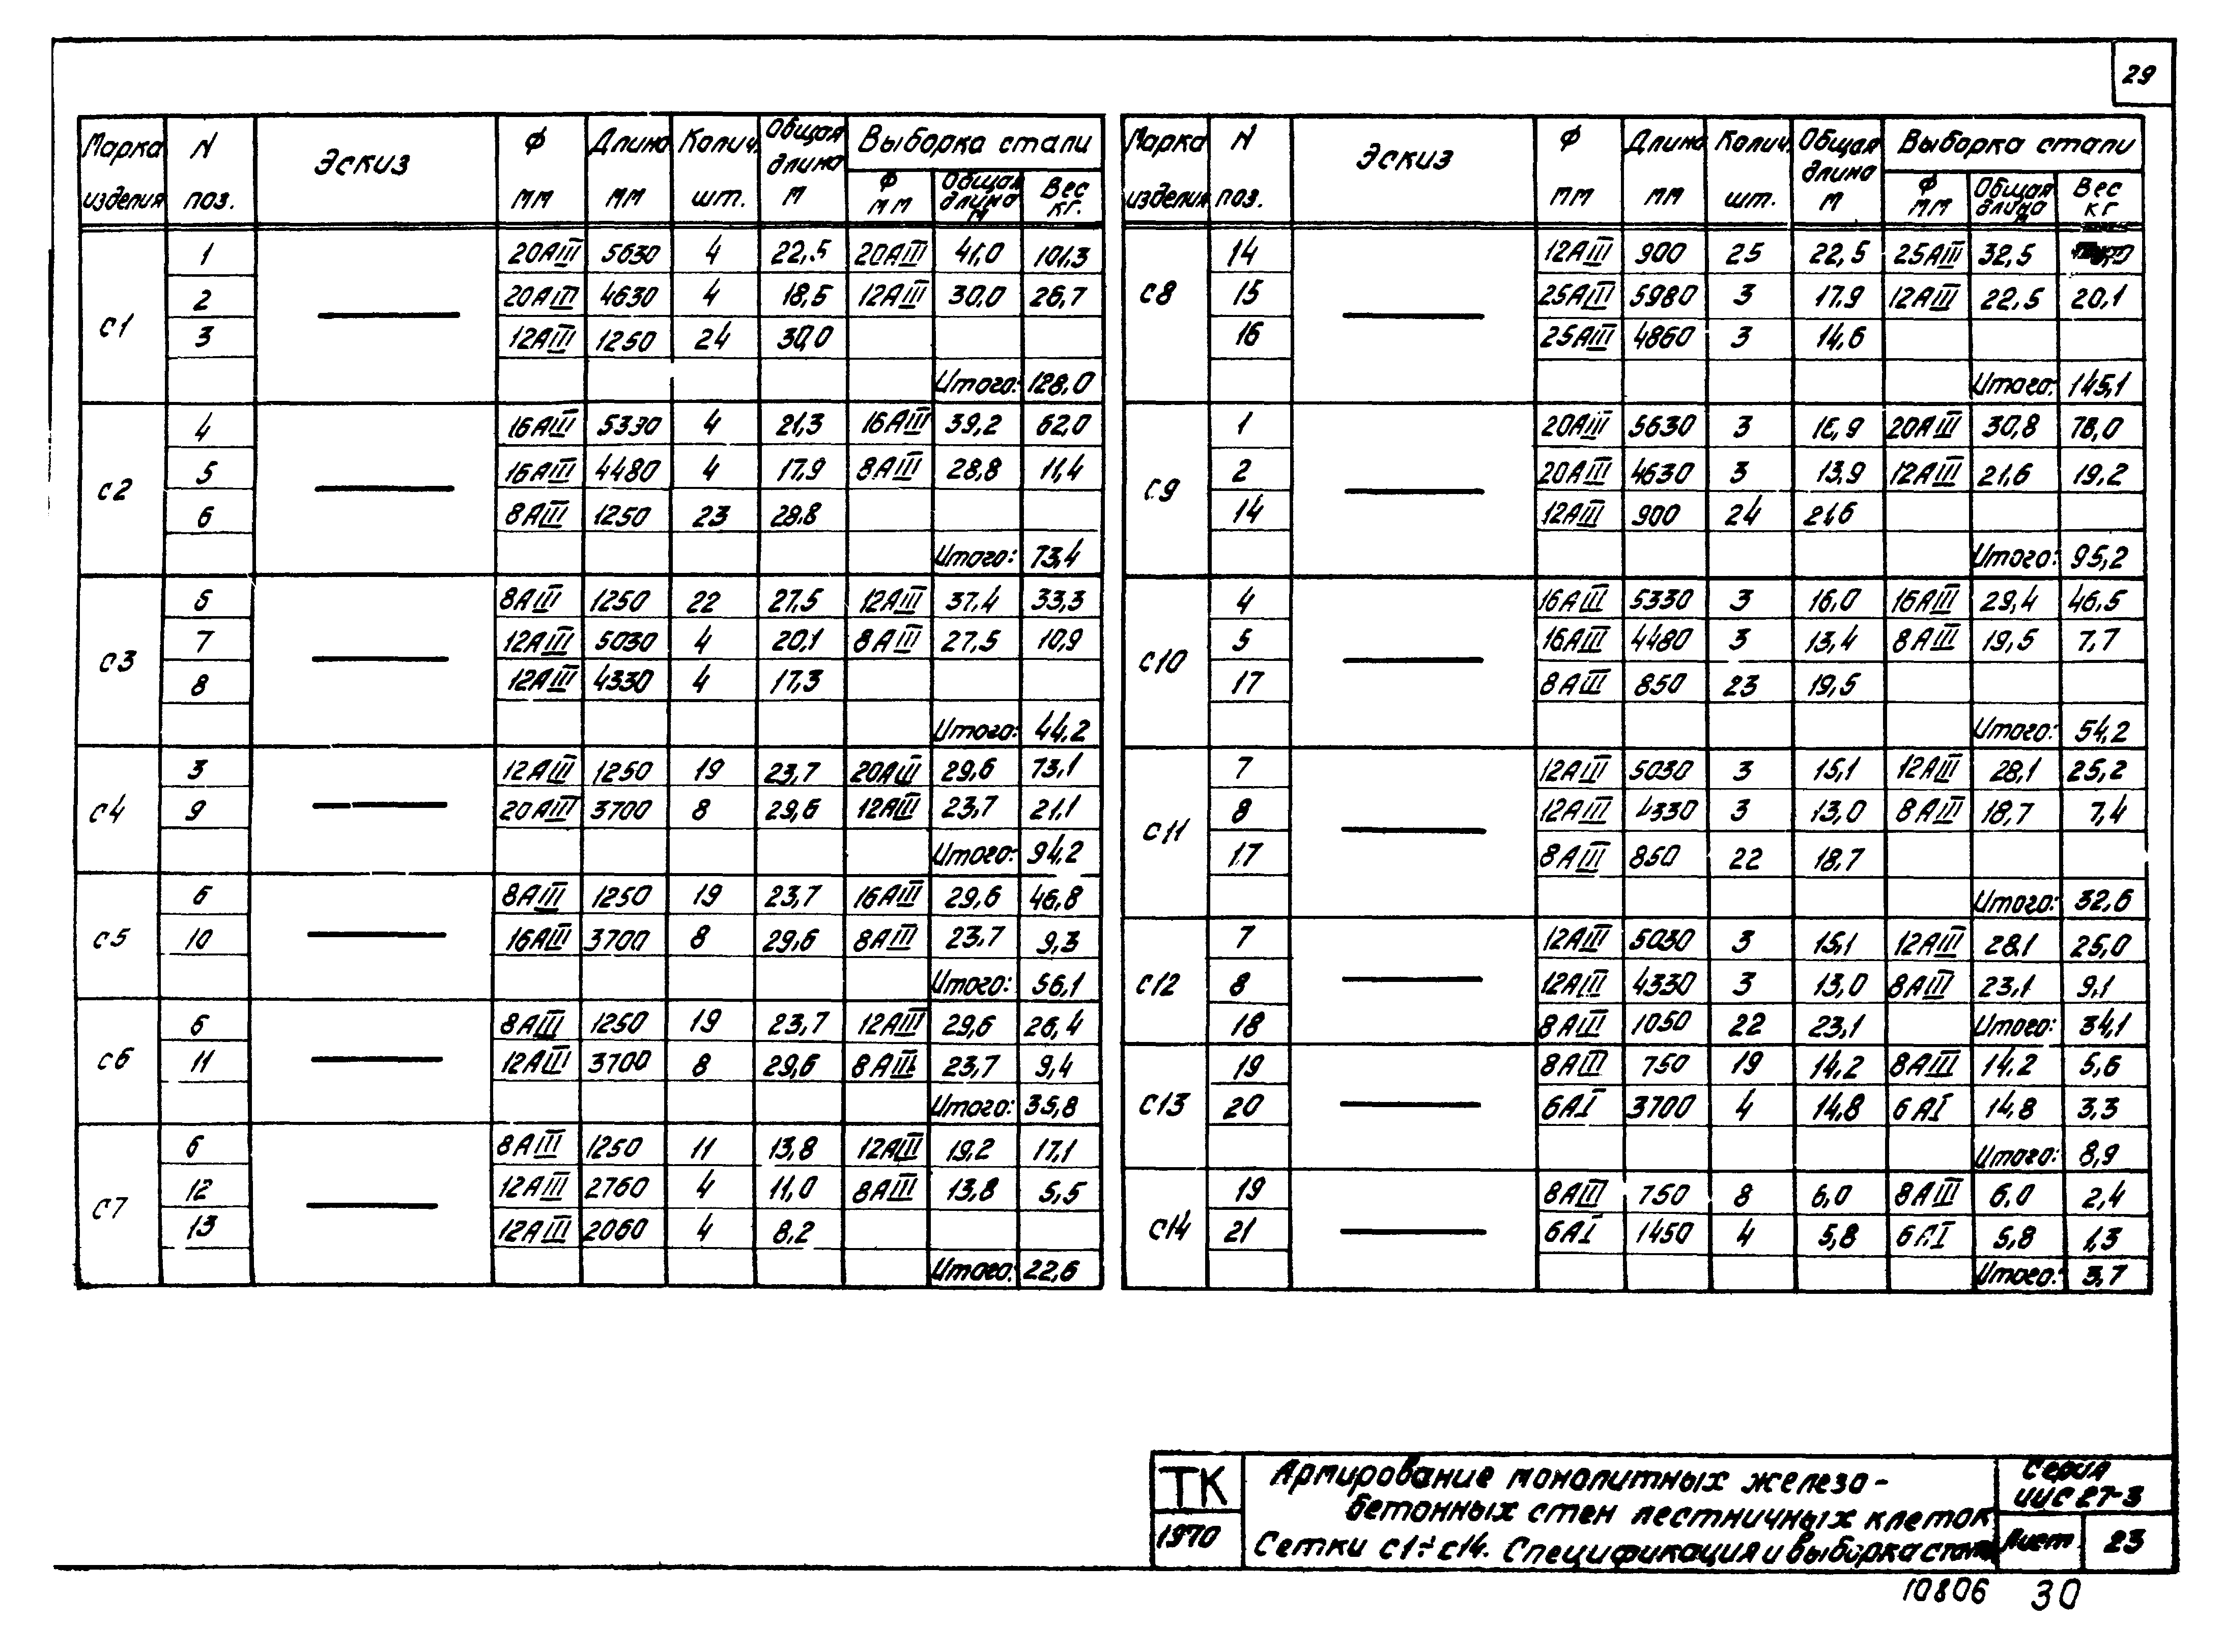 29
Марка изделия N поз. Эскиз Ф мм Длина мм Колич. шт. Общая длина м Выборка стали Ф мм Общая длина м Вес кг.
с1
1 20АIII 5630 4 22,5 20АIII 41,0 101,3
2 20АIII 4630 4 18,5 12АIII 30,0 26,7
3 12АIII 1250 24 30,0
Итого: 128,0
с2
4 16АIII 5330 4 21,3 16АIII 39,2 62,0
5 16АIII 4480 4 17,9 8АIII 28,8 11,4
6 8АIII 1250 23 28,8
Итого: 73,4
с3
6 8АIII 1250 22 27,5 12АIII 37,4 33,3
7 12АIII 5030 4 20,1 8АIII 27,5 10,9
8 12АIII 4330 4 17,3
Итого: 44,2
с4
3 12АIII 1250 19 23,7 20АIII 29,6 73,1
9 20АIII 3700 8 29,6 12АIII 23,7 21,1
Итого: 94,2
с5
6 8АIII 1250 19 23,7 16АIII 29,6 46,8
10 16АIII 3700 8 29,6 8АIII 23,7 9,3
Итого: 56,1
с6
6 8АIII 1250 19 23,7 12АIII 29,6 26,4
11 12АIII 3700 8 29,6 8АIII 23,7 9,4
Итого: 35,8
с7
6 8АIII 1250 11 13,8 12АIII 19,2 17,1
12 12АIII 2760 4 11,0 8АIII 13,8 5,5
13 12АIII 2060 4 8,2
Итого: 22,6
Марка изделия N поз. Эскиз Ф мм Длина мм Колич. шт. Общая длина м Выборка стали Ф мм Общая длина м Вес кг
с8
14 12АIII 900 25 22,5 25АIII 32,5
15 25АIII 5980 3 17,9 12АIII 22,5 20,1
16 25АIII 4860 3 14,6
Итого: 145,1
с9
1 20АIII 5630 3 16,9 20АIII 30,8 76,0
2 20АIII 4630 3 13,9 12АIII 21,6 19,2
14 12АIII 900 24 21,6
Итого: 95,2
с10
4 16АIII 5330 3 16,0 16АIII 29,4 46,5
5 16АIII 4480 3 13,4 8АIII 19,5 7,7
17 8АIII 850 23 19,5
Итого: 54,2
с11
7 12АIII 5030 3 15,1 12АIII 28,1 25,2
8 12АIII 4330 3 13,0 8АIII 18,7 7,4
17 8АIII 850 22 18,7
Итого: 32,6
с12
7 12АIII 5030 3 15,1 12АIII 28,1 25,0
8 12АIII 4330 3 13,0 8АIII 23,1 9,1
18 8АIII 1050 22 23,1 Итого: 34,1
с13
19 8АIII 750 19 14,2 8АIII 14,2 5,6
20 6АI 3700 4 14,8 6АI 14,8 3,3
Итого: 8,9
с14
19 8АIII 750 8 6,0 8АIII 6,0 2,4
21 6АI 1450 4 5,8 6АI 5,8 1,3
Итого: 3,7
ТК
1970
Армирование монолитных железо-
бетонных стен лестничных клеток
Сетки с1÷с14. Спецификация и выборка стали
Серия
ИИС 27-3
Лист 23
10806 30